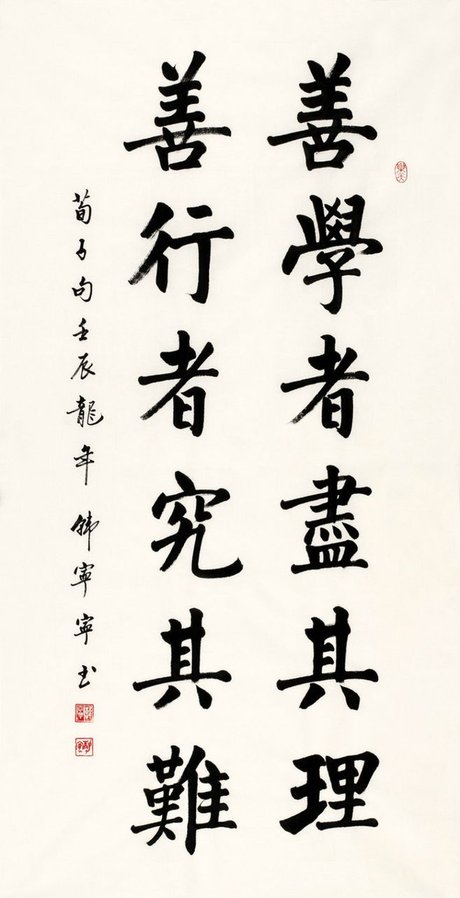 善學者盡其理
善行者究其難
荀子句壬辰龍年韓寧寧书